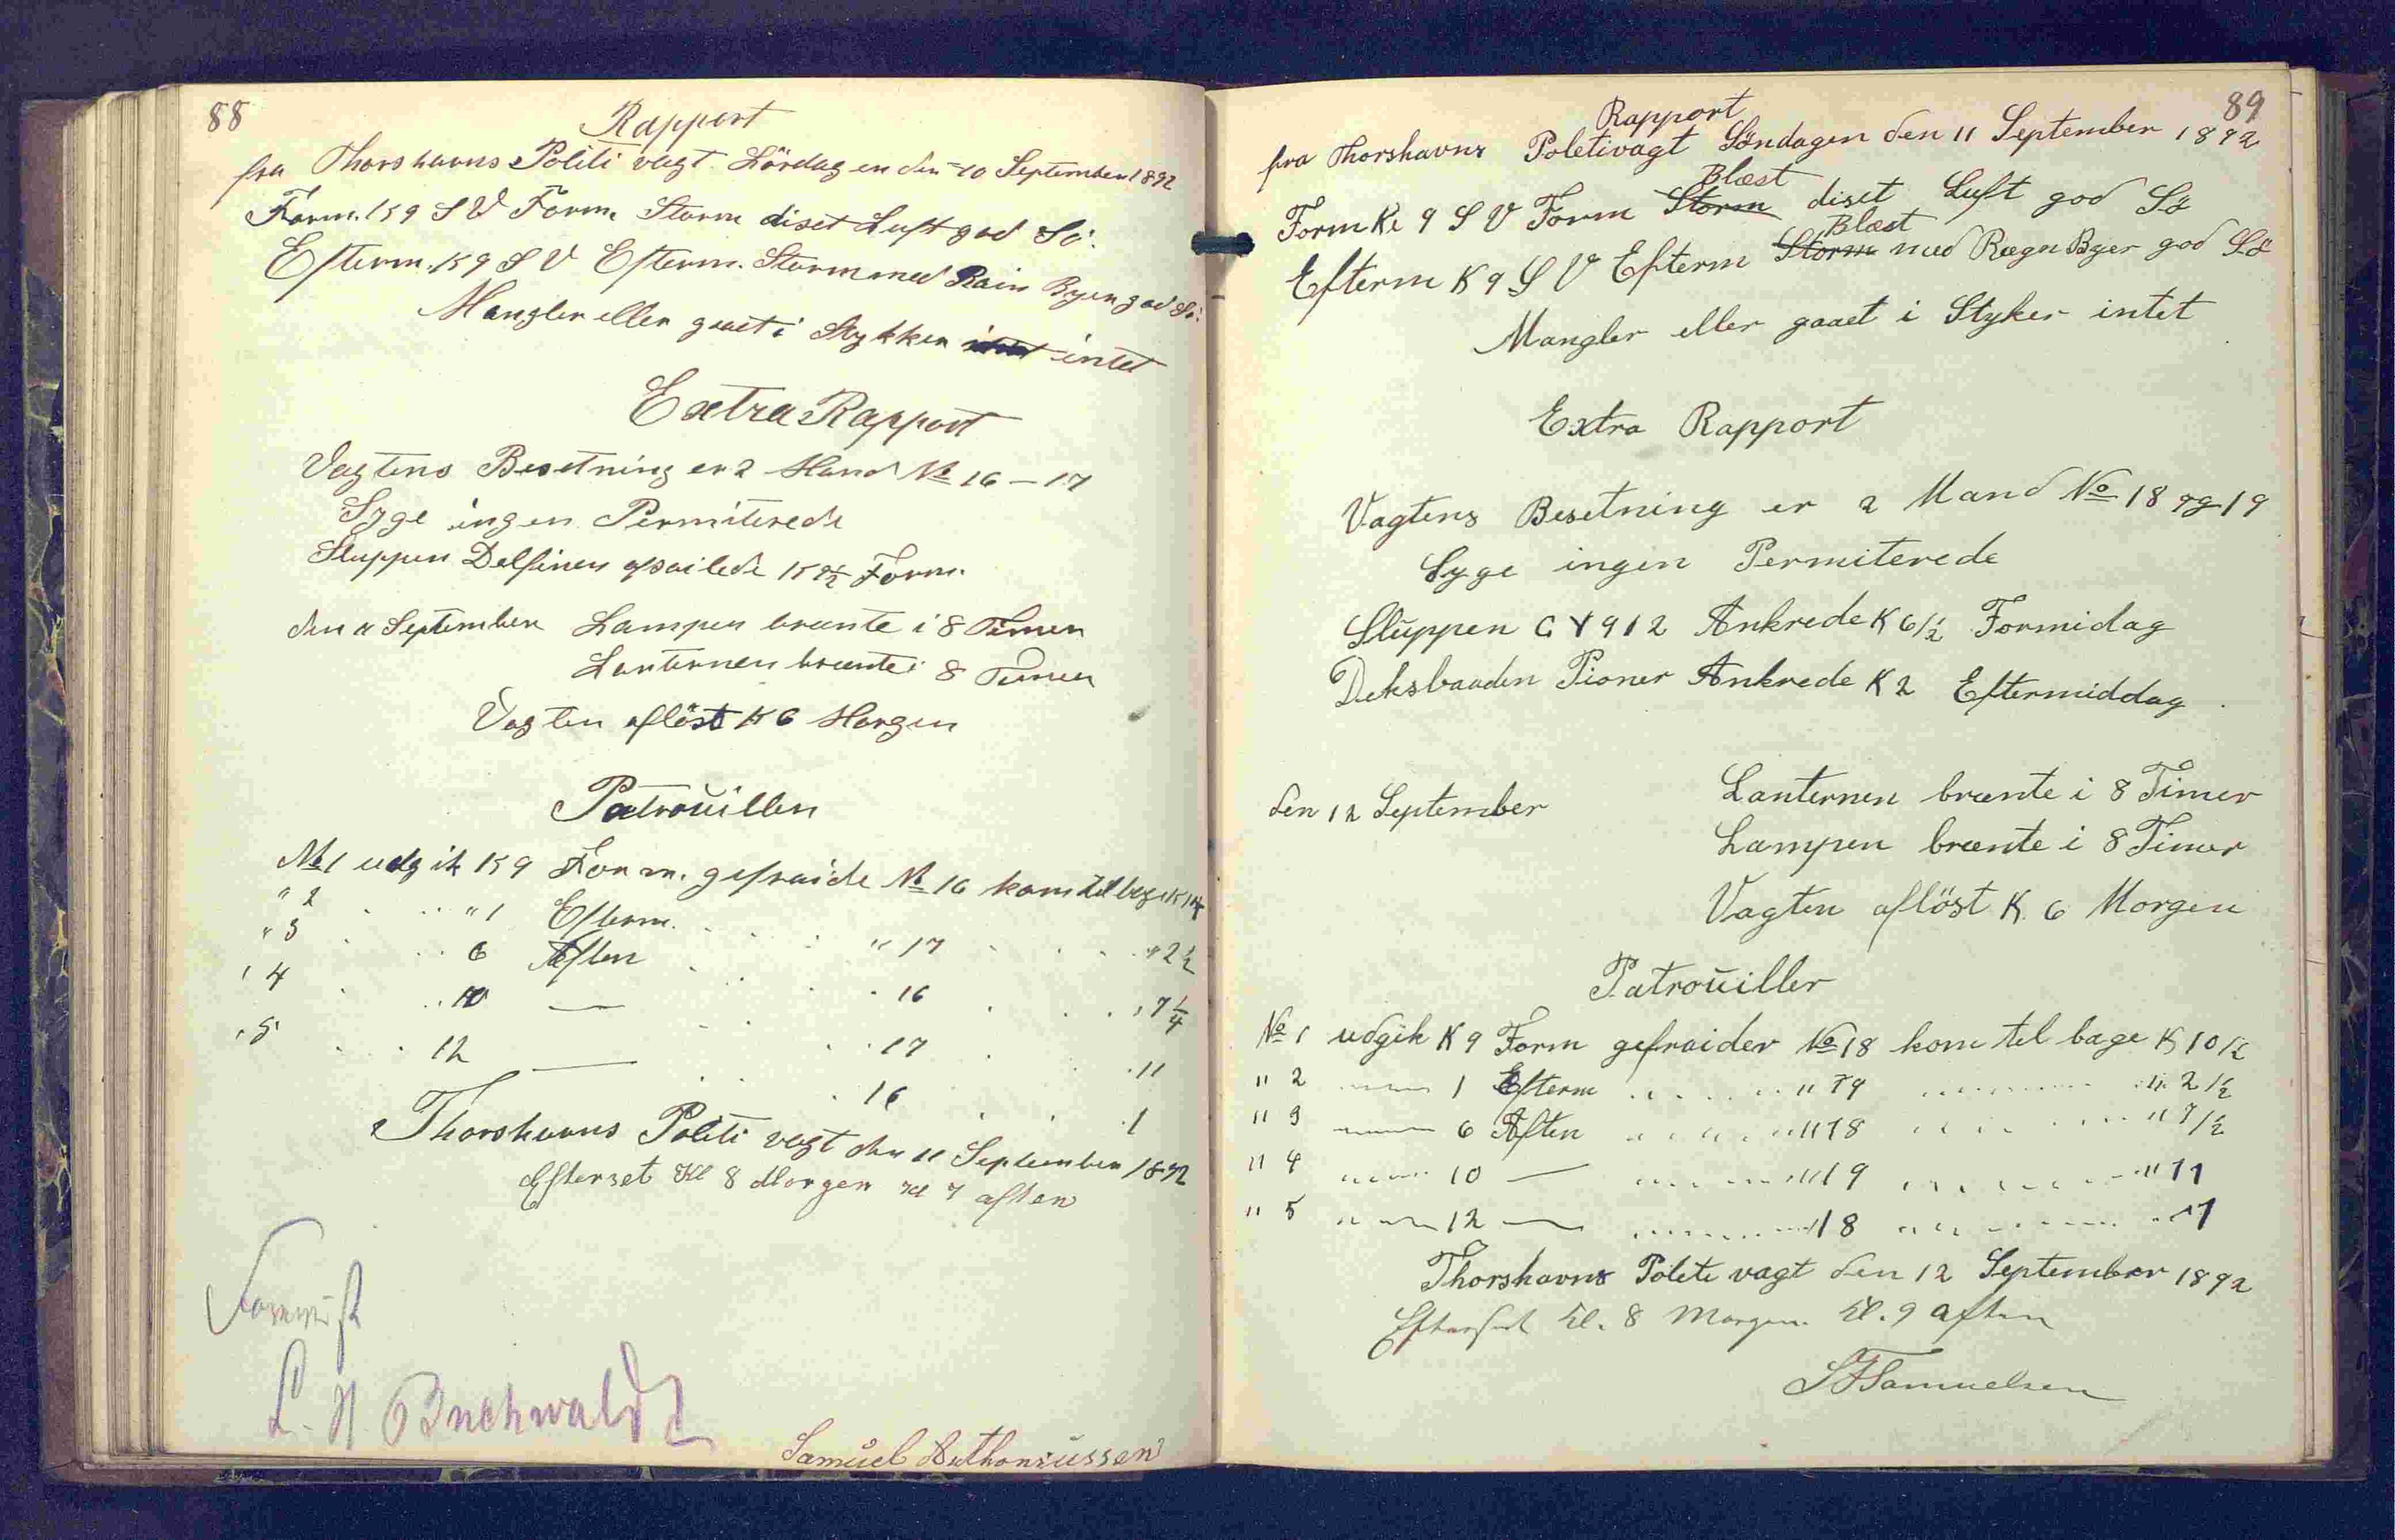 88
Rapport
fra Thorshavns Politi vagt Lördagen den 10 September 1892
Form. K 9 S V Form. Storm diset Luft god Sö.
Efterm. K 9 S V Efterm. Storm med Rain Byer god Sö.
Mangler eller gaaet i Stykker intet
Extra Rapport
Vagtens Besetning er 2 Mand No 16 – 17
Syge ingen Permiterede
Sluppen Delfinen afseilede K Form.
den 11 September Lampen brænte i 8 Timer
Lanternen brænte i 8 Timer
Vagten aflöst K 6 Morgen
Patrouillen
No 1 udgik K 9 Form. gefraide No 16 kom tilbage K
" 2 " 1 Efterm. " 17 " 2 1/2
" 3 6 Aften 16 7 1/4
" 4 10 — 17 11
" 5 12 — 16 1
Thorshavns Politi vagt den 11 September 1892
Efterset Kl 8 Morgen Kl 7 aften
L. H. Buchwaldt
Samuel Anthoniussen
89
Rapport
fra Thorshavns Poletivagt Söndagen den 11 September 1892
Blæst
Form Kl 9 S V Form Storm diset Luft god Sö
Blæst
Efterm K 9 S V Efterm Storm med Rægn Byer god Sö
Mangler eller gaaet i Styker intet
Extra Rapport
Vagtens Besetning er 2 Mand No 18 og 19
Syge ingen Permiterede
Sluppen G Y 912 Ankrede K 6 1/2 Formidag
Deksbaaden Pioner Ankrede K 2 Eftermiddag
den 12 September Lanternen brænte i 8 Timer
Lampen brænte i 8 Timer
Vagten aflöst K. 6 Morgen
Patrouiller
No 1 udgik K 9 Form gefraider No 18 kom til bage K 10 1/2
" 2 1 Efterm " 19 " 2 1/2
" 3 6 Aften " 18 " 7 1/2
" 4 10 — " 19 " 11
" 5 12 — 18 1
Thorshavns Polete vagt den 12 September 1892
Efterset Kl. 8 Morgen Kl. 9 aften
Samuelsen